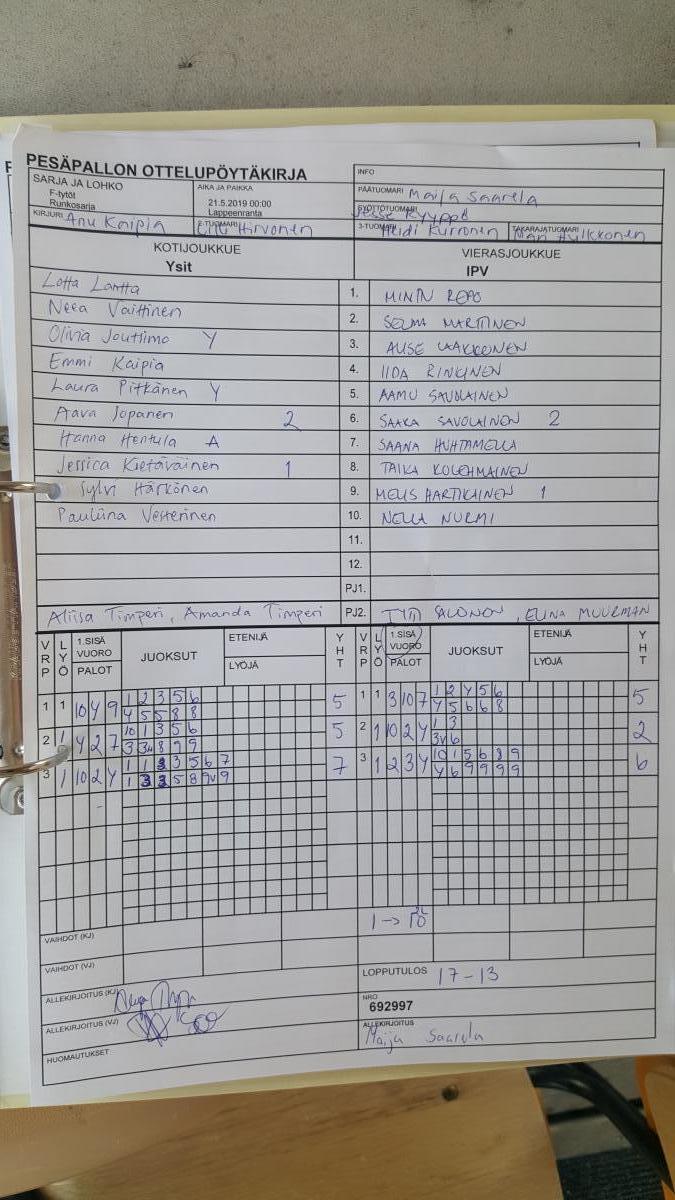 PESÄPALLON OTTELUPÖYTÄKIRJA
INFO
SARJA JA LOHKO
F-tytöt
Runkosarja
AIKA JA PAIKKA
21.5.2019 00:00
Lappeenranta
PÄÄTUOMARI Maija Saarela
SYÖTTÖTUOMARI Jesse Kyyppö
KIRJURI Anu Kaipia
2-TUOMARI Hirvonen
3-TUOMARI Heidi Kurronen
TAKARAJATUOMARI Hulkkonen
KOTIJOUKKUE
Ysit
VIERASJOUKKUE
IPV
Lotta Lantta 1. MINTN REPO
Neea Vaittinen 2. SELMA MARTTINEN
Olivia Joutsimo Y 3. LAAKKONEN
Emmi Kaipia 4. IIDA RINKINEN
Laura Pitkänen Y 5. AAMU SAVOLAINEN
Aava Jopanen 2 6. SAAKA SAVOLAINEN 2
Hanna Hentula A 7. SAANA HUHTAMELLA
Jessica Kietäväinen 1 8. TAIKA KOLEHMAINEN
Sylvi Härkönen 9. HARTIKAINEN 1
Pauliina Vesterinen 10. NELLA NURMI
11.
12.
PJ1.
Aliisa Timperi, Amanda Timperi PJ2. SALONON, ELINA MUURMAN
VRP LYÖ 1.SISÄ VUORO PALOT JUOKSUT ETENIJÄ LYÖJÄ YHT VRP LYÖ 1.SISÄ VUORO PALOT JUOKSUT ETENIJÄ LYÖJÄ YHT
1 1 10 4 9 1 2 3 5 6 5 1 1 3 10 7 1 2 4 5 6 5
4 5 5 8 8 4 5 6 6 8
2 1 4 2 7 10 1 3 5 6 5 2 1 10 2 4 1 3 2
3 1 10 2 4 1 1 3 3 5 6 7 7 3 1 2 3 4 10 1 5 6 8 9 6
4 6 9 9 9 9
VAIHDOT (KJ)
VAIHDOT (VJ)
LOPPUTULOS 17-13
ALLEKIRJOITUS (KJ)
NRO
692997
ALLEKIRJOITUS (VJ)
ALLEKIRJOITUS
Maija Saarela
HUOMAUTUKSET